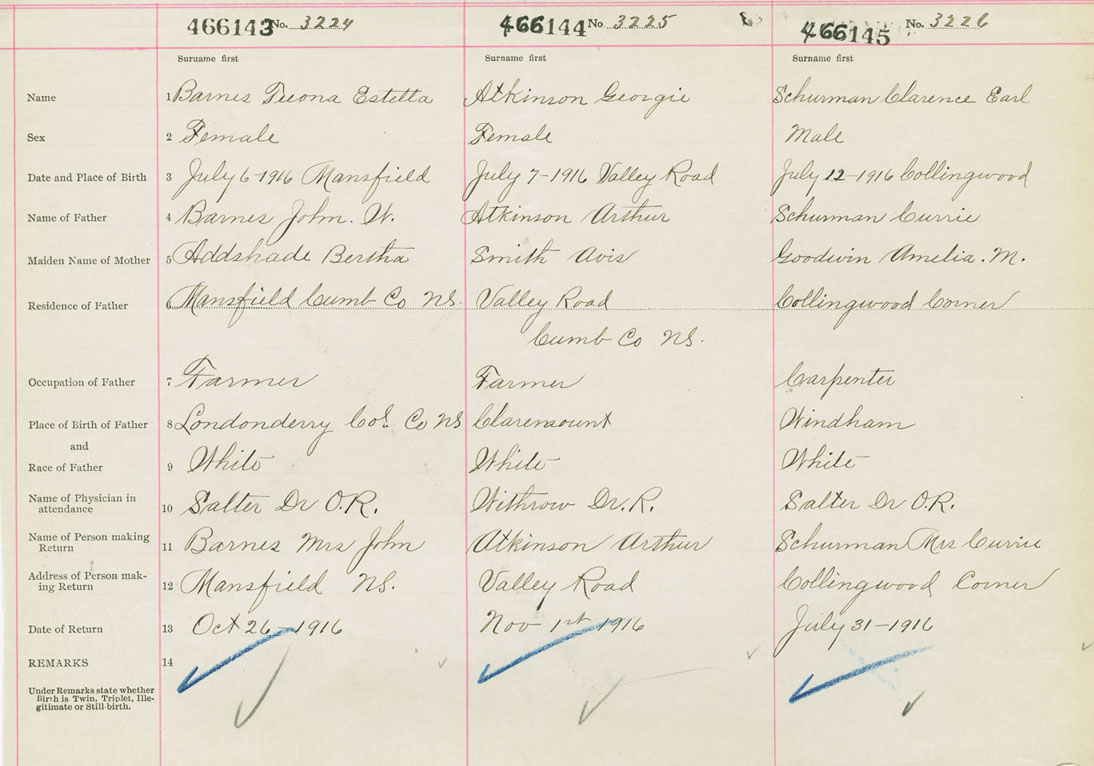 466143 No. 3224 466144 No 3225 466145 No. 3226
Surname first Surname first Surname first
Name 1 Barnes Teona Estella Atkinson Georgie Schurman Clarence Earl
Sex 2 Female Female Male
Date and Place of Birth 3 July 6-1916 Mansfield July 7-1916 Valley Road July 12-1916 Collingwood
Name of Father 4 Barnes John. W. Atkinson Arthur Schurman Currie
Maiden Name of Mother 5 Addshade Bertha Smith Avis Goodwin Amelia. M.
Residence of Father 6 Mansfield Cumb Co NS. Valley Road Collingwood Corner
Cumb Co NS.
Occupation of Father 7 Farmer Farmer Carpenter
Place of Birth of Father 8 Londonderry Col. Co NS Claremount Windham
and
Race of Father 9 White White White
Name of Physician in
attendance 10 Salter Dr O.R. Withrow Dr. R. Salter Dr O.R.
Name of Person making
Return 11 Barnes Mrs John Atkinson Arthur Schurman Mrs Currie
Address of Person mak-
ing Return 12 Mansfield NS. Valley Road Collingwood Corner
Date of Return 13 Oct 26-1916 Nov 1st 1916 July 31-1916
REMARKS 14
Under Remarks state whether
Birth is Twin, Triplet, Ille-
gitimate or Still-birth.